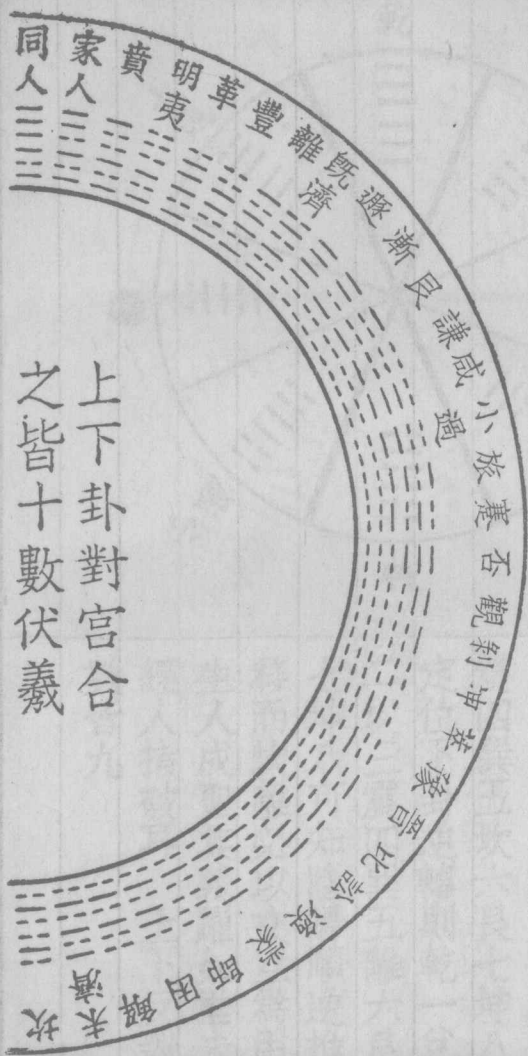 同人
家人
賁
明夷
革
豐
離
既濟
遯
漸
艮
謙
咸
小過
旅
蹇
否
觀
剥
坤
萃
豫
晉
比
訟
渙
蒙
師
困
解
未濟
坎
上下卦對宫合
之皆十數伏羲